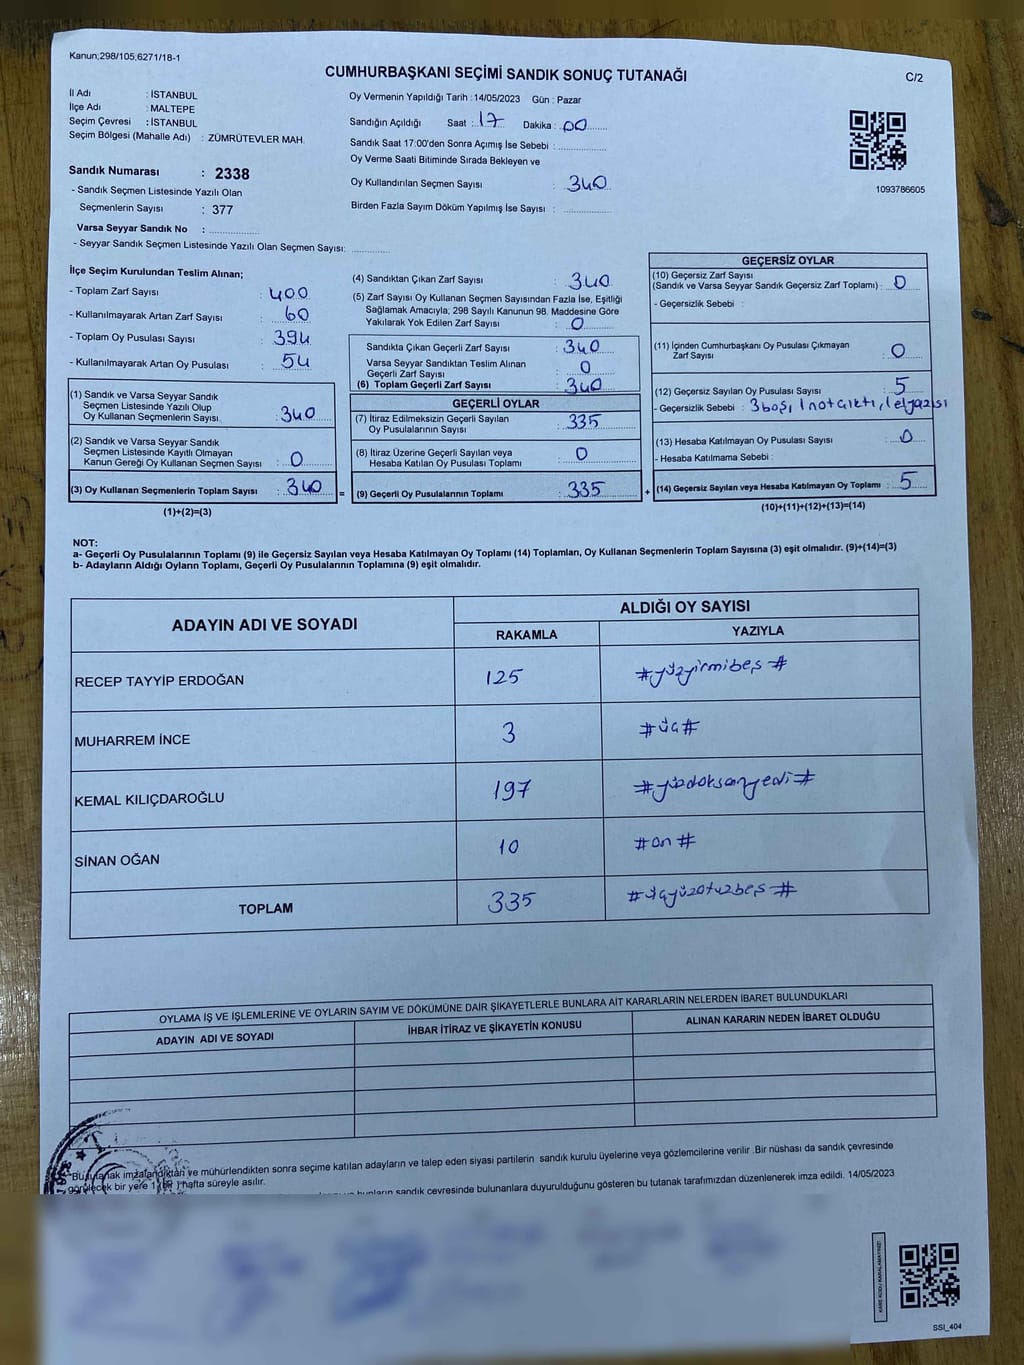 Kanun;298/105;6271/18-1
CUMHURBAŞKANI SEÇİMİ SANDIK SONUÇ TUTANAĞI
C/2
İl Adı : İSTANBUL
İlçe Adı : MALTEPE
Seçim Çevresi : İSTANBUL
Seçim Bölgesi (Mahalle Adı) : ZÜMRÜTEVLER MAH.
Sandık Numarası : 2338
- Sandık Seçmen Listesinde Yazılı Olan
Seçmenlerin Sayısı : 377
Varsa Seyyar Sandık No :
- Seyyar Sandık Seçmen Listesinde Yazılı Olan Seçmen Sayısı:
Oy Vermenin Yapıldığı Tarih : 14/05/2023 Gün : Pazar
Sandığın Açıldığı Saat : 17 Dakika : 00
Sandık Saat 17:00'den Sonra Açımış İse Sebebi :
Oy Verme Saati Bitiminde Sırada Bekleyen ve
Oy Kullandırılan Seçmen Sayısı : 340
Birden Fazla Sayım Döküm Yapılmış İse Sayısı :
1093786605
İlçe Seçim Kurulundan Teslim Alınan;
- Toplam Zarf Sayısı : 400
- Kullanılmayarak Artan Zarf Sayısı : 60
- Toplam Oy Pusulası Sayısı : 394
- Kullanılmayarak Artan Oy Pusulası : 54
(1) Sandık ve Varsa Seyyar Sandık
Seçmen Listesinde Yazılı Olup
Oy Kullanan Seçmenlerin Sayısı : 340
(2) Sandık ve Varsa Seyyar Sandık
Seçmen Listesinde Kayıtlı Olmayan
Kanun Gereği Oy Kullanan Seçmen Sayısı : 0
(3) Oy Kullanan Seçmenlerin Toplam Sayısı : 340
(1)+(2)=(3)
(4) Sandıktan Çıkan Zarf Sayısı : 340
(5) Zarf Sayısı Oy Kullanan Seçmen Sayısından Fazla İse, Eşitliği
Sağlamak Amacıyla; 298 Sayılı Kanunun 98. Maddesine Göre
Yakılarak Yok Edilen Zarf Sayısı : 0
Sandıkta Çıkan Geçerli Zarf Sayısı : 340
Varsa Seyyar Sandıktan Teslim Alınan
Geçerli Zarf Sayısı : 0
(6) Toplam Geçerli Zarf Sayısı : 340
GEÇERLİ OYLAR
(7) İtiraz Edilmeksizin Geçerli Sayılan
Oy Pusulalarının Sayısı : 335
(8) İtiraz Üzerine Geçerli Sayılan veya
Hesaba Katılan Oy Pusulası Toplamı : 0
= (9) Geçerli Oy Pusulalarının Toplamı : 335 +
GEÇERSİZ OYLAR
(10) Geçersiz Zarf Sayısı
(Sandık ve Varsa Seyyar Sandık Geçersiz Zarf Toplamı) : 0
- Geçersizlik Sebebi :
(11) İçinden Cumhurbaşkanı Oy Pusulası Çıkmayan
Zarf Sayısı : 0
(12) Geçersiz Sayılan Oy Pusulası Sayısı : 5
- Geçersizlik Sebebi : 3 boş, 1 not çıktı, 1 elyazısı
(13) Hesaba Katılmayan Oy Pusulası Sayısı : 0
- Hesaba Katılmama Sebebi :
(14) Geçersiz Sayılan veya Hesaba Katılmayan Oy Toplamı : 5
(10)+(11)+(12)+(13)=(14)
NOT:
a- Geçerli Oy Pusulalarının Toplamı (9) ile Geçersiz Sayılan veya Hesaba Katılmayan Oy Toplamı (14) Toplamları, Oy Kullanan Seçmenlerin Toplam Sayısına (3) eşit olmalıdır. (9)+(14)=(3)
b- Adayların Aldığı Oyların Toplamı, Geçerli Oy Pusulalarının Toplamına (9) eşit olmalıdır.
ADAYIN ADI VE SOYADI
ALDIĞI OY SAYISI
RAKAMLA YAZIYLA
RECEP TAYYİP ERDOĞAN 125 #yüzyirmibeş#
MUHARREM İNCE 3 #üç#
KEMAL KILIÇDAROĞLU 197 #yüzdoksanyedi#
SİNAN OĞAN 10 #on#
TOPLAM 335 #üçyüzotuzbeş#
OYLAMA İŞ VE İŞLEMLERİNE VE OYLARIN SAYIM VE DÖKÜMÜNE DAİR ŞİKAYETLERLE BUNLARA AİT KARARLARIN NELERDEN İBARET BULUNDUKLARI
ADAYIN ADI VE SOYADI İHBAR İTİRAZ VE ŞİKAYETİN KONUSU ALINAN KARARIN NEDEN İBARET OLDUĞU
Bu tutanak imzalandıktan ve mühürlendikten sonra seçime katılan adayların ve talep eden siyasi partilerin sandık kurulu üyelerine veya gözlemcilerine verilir .Bir nüshası da sandık çevresinde
görülecek bir yere 1 (bir ) hafta süreyle asılır.
bunların sandık çevresinde bulunanlara duyurulduğunu gösteren bu tutanak tarafımızdan düzenlenerek imza edildi. 14/05/2023
KARE KODU KARALAMAYINIZ!
SSI_404